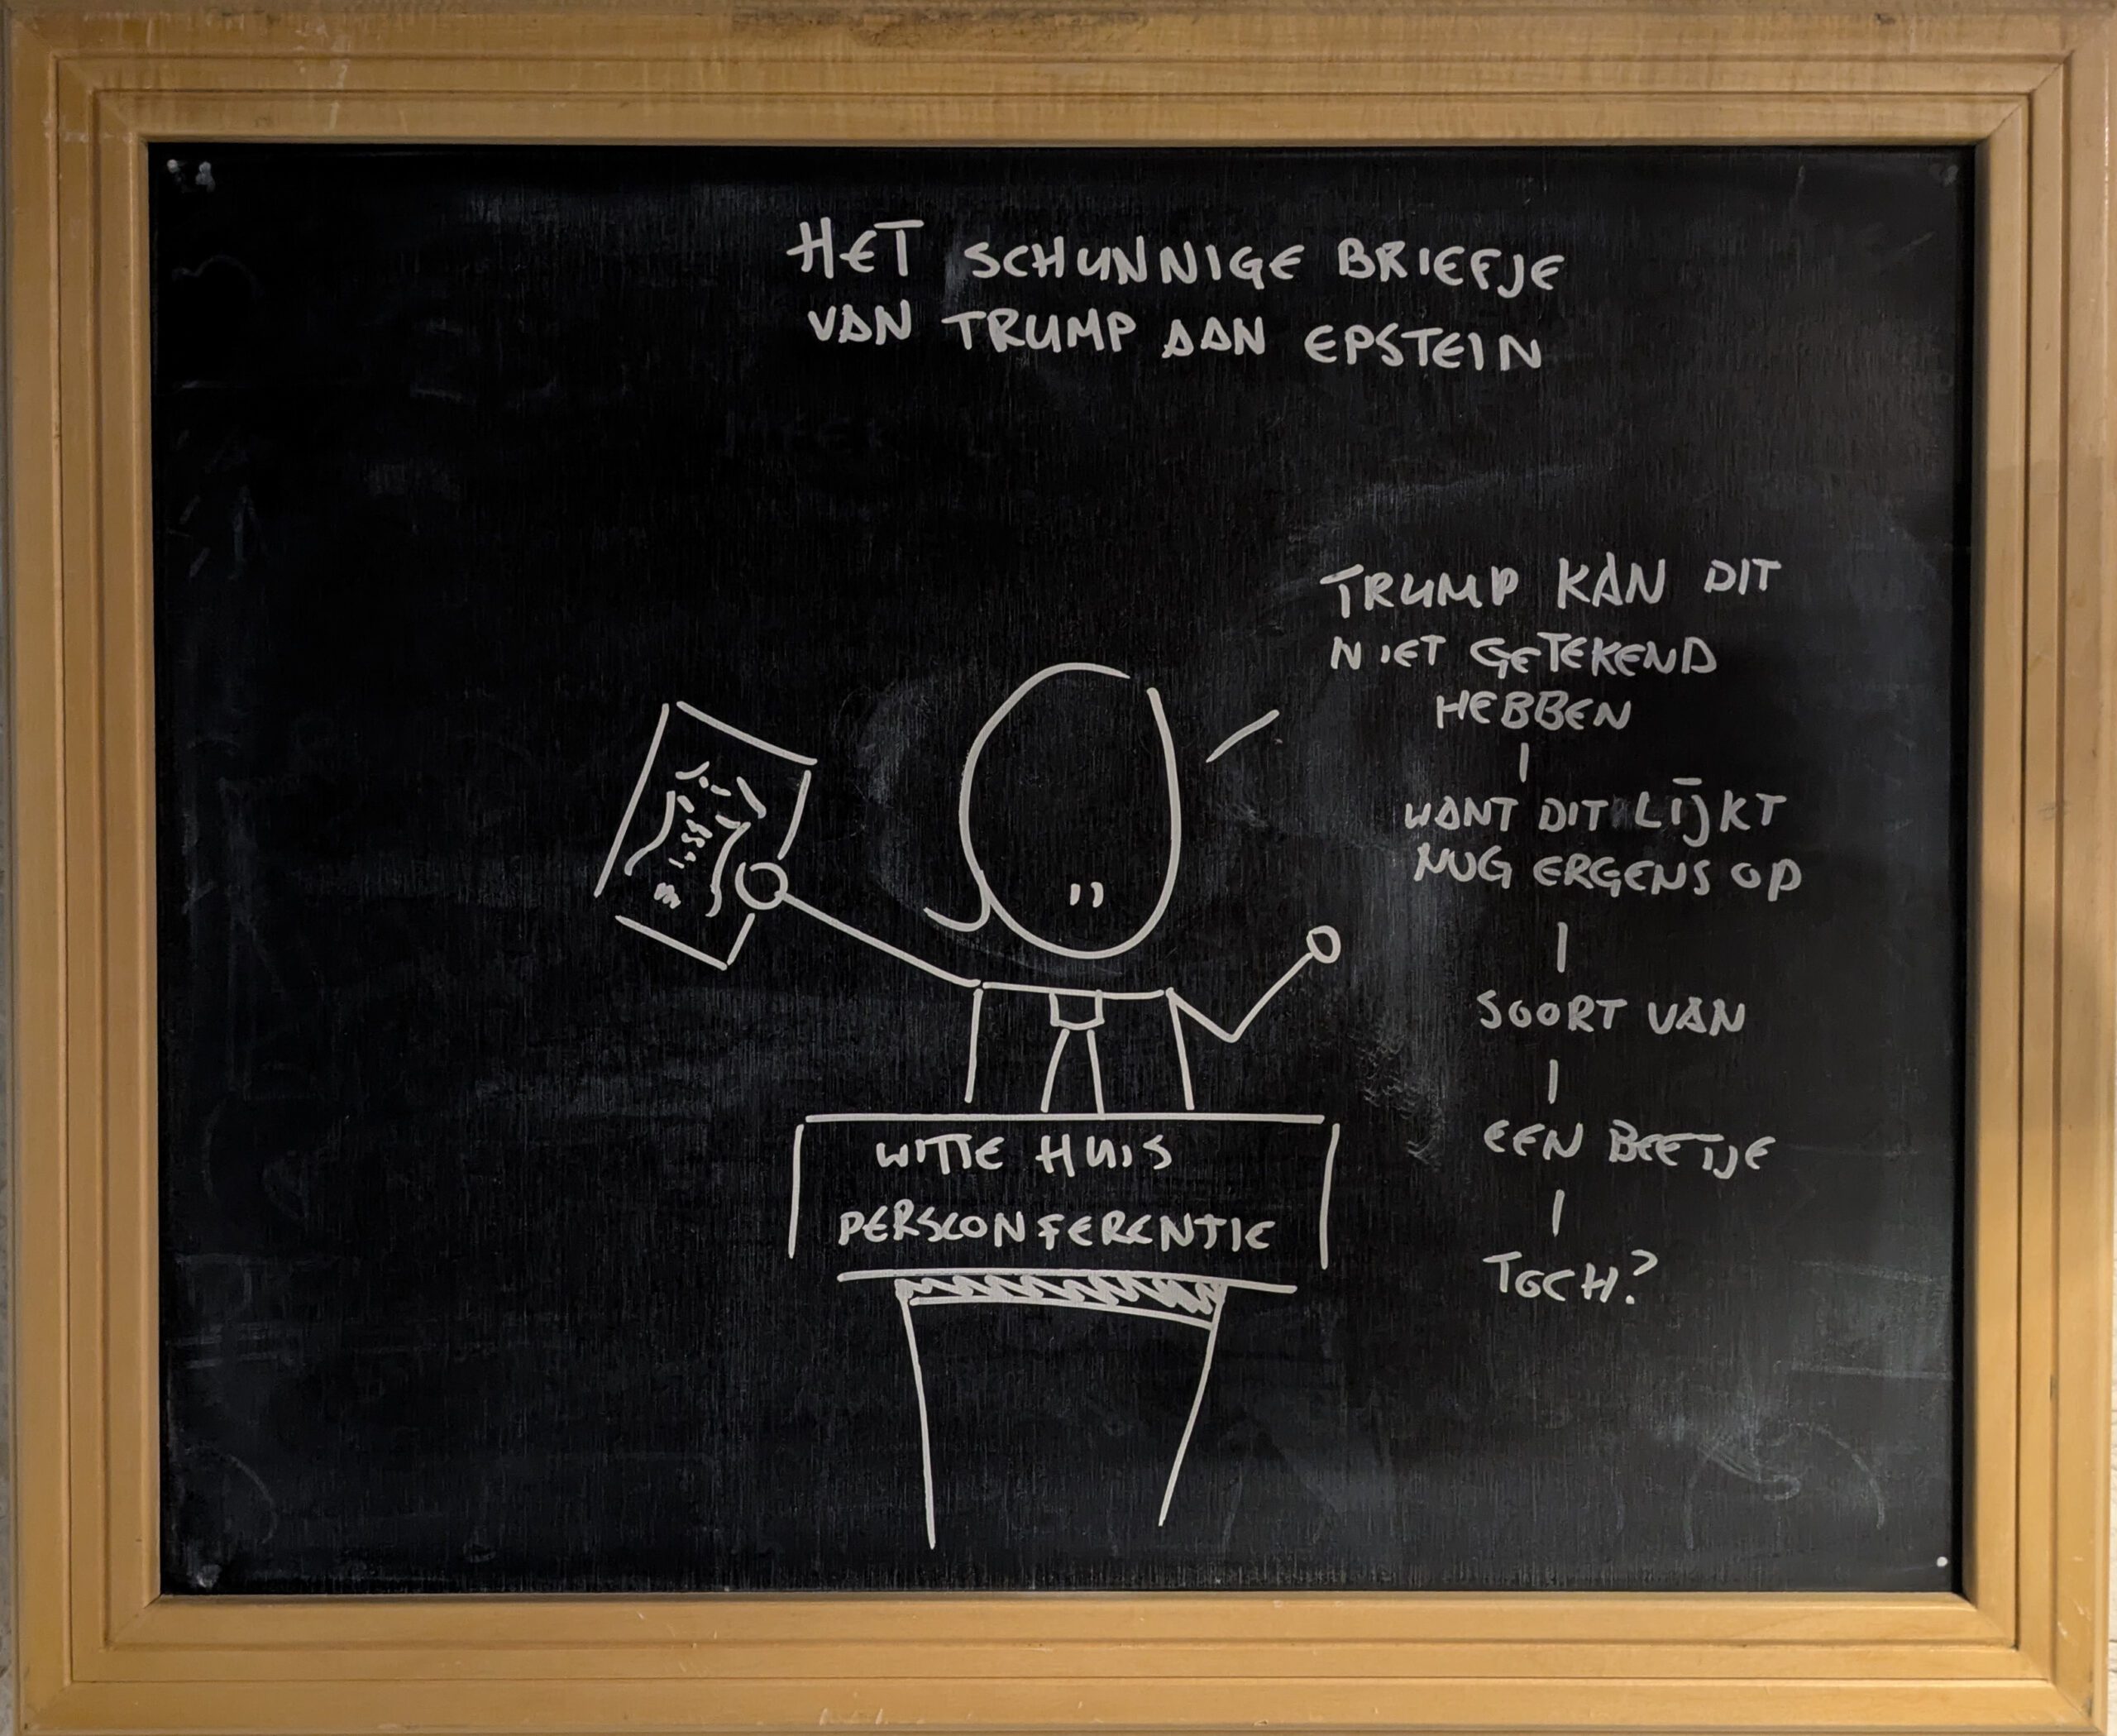 HET SCHUNNIGE BRIEFJE
VAN TRUMP AAN EPSTEIN
TRUMP KÀN DIT
NIET GETEKEND
HEBBEN
WANT DIT LIJKT
NOG ERGENS OP
SOORT VAN
EEN BEETJE
TOCH?
WITTE HUIS
PERSCONFERENTIE